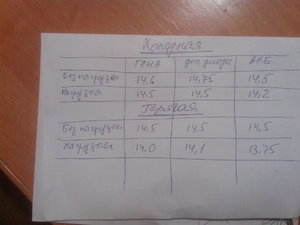 Холодная
ГЕНА доп диода АКБ
Без нагрузки 14,6 14,75 14,5
Нагрузка 14,5 14,5 14,2
Горячая
Без нагрузки 14,5 14,5 14,5
Нагрузка 14,0 14,1 13,75